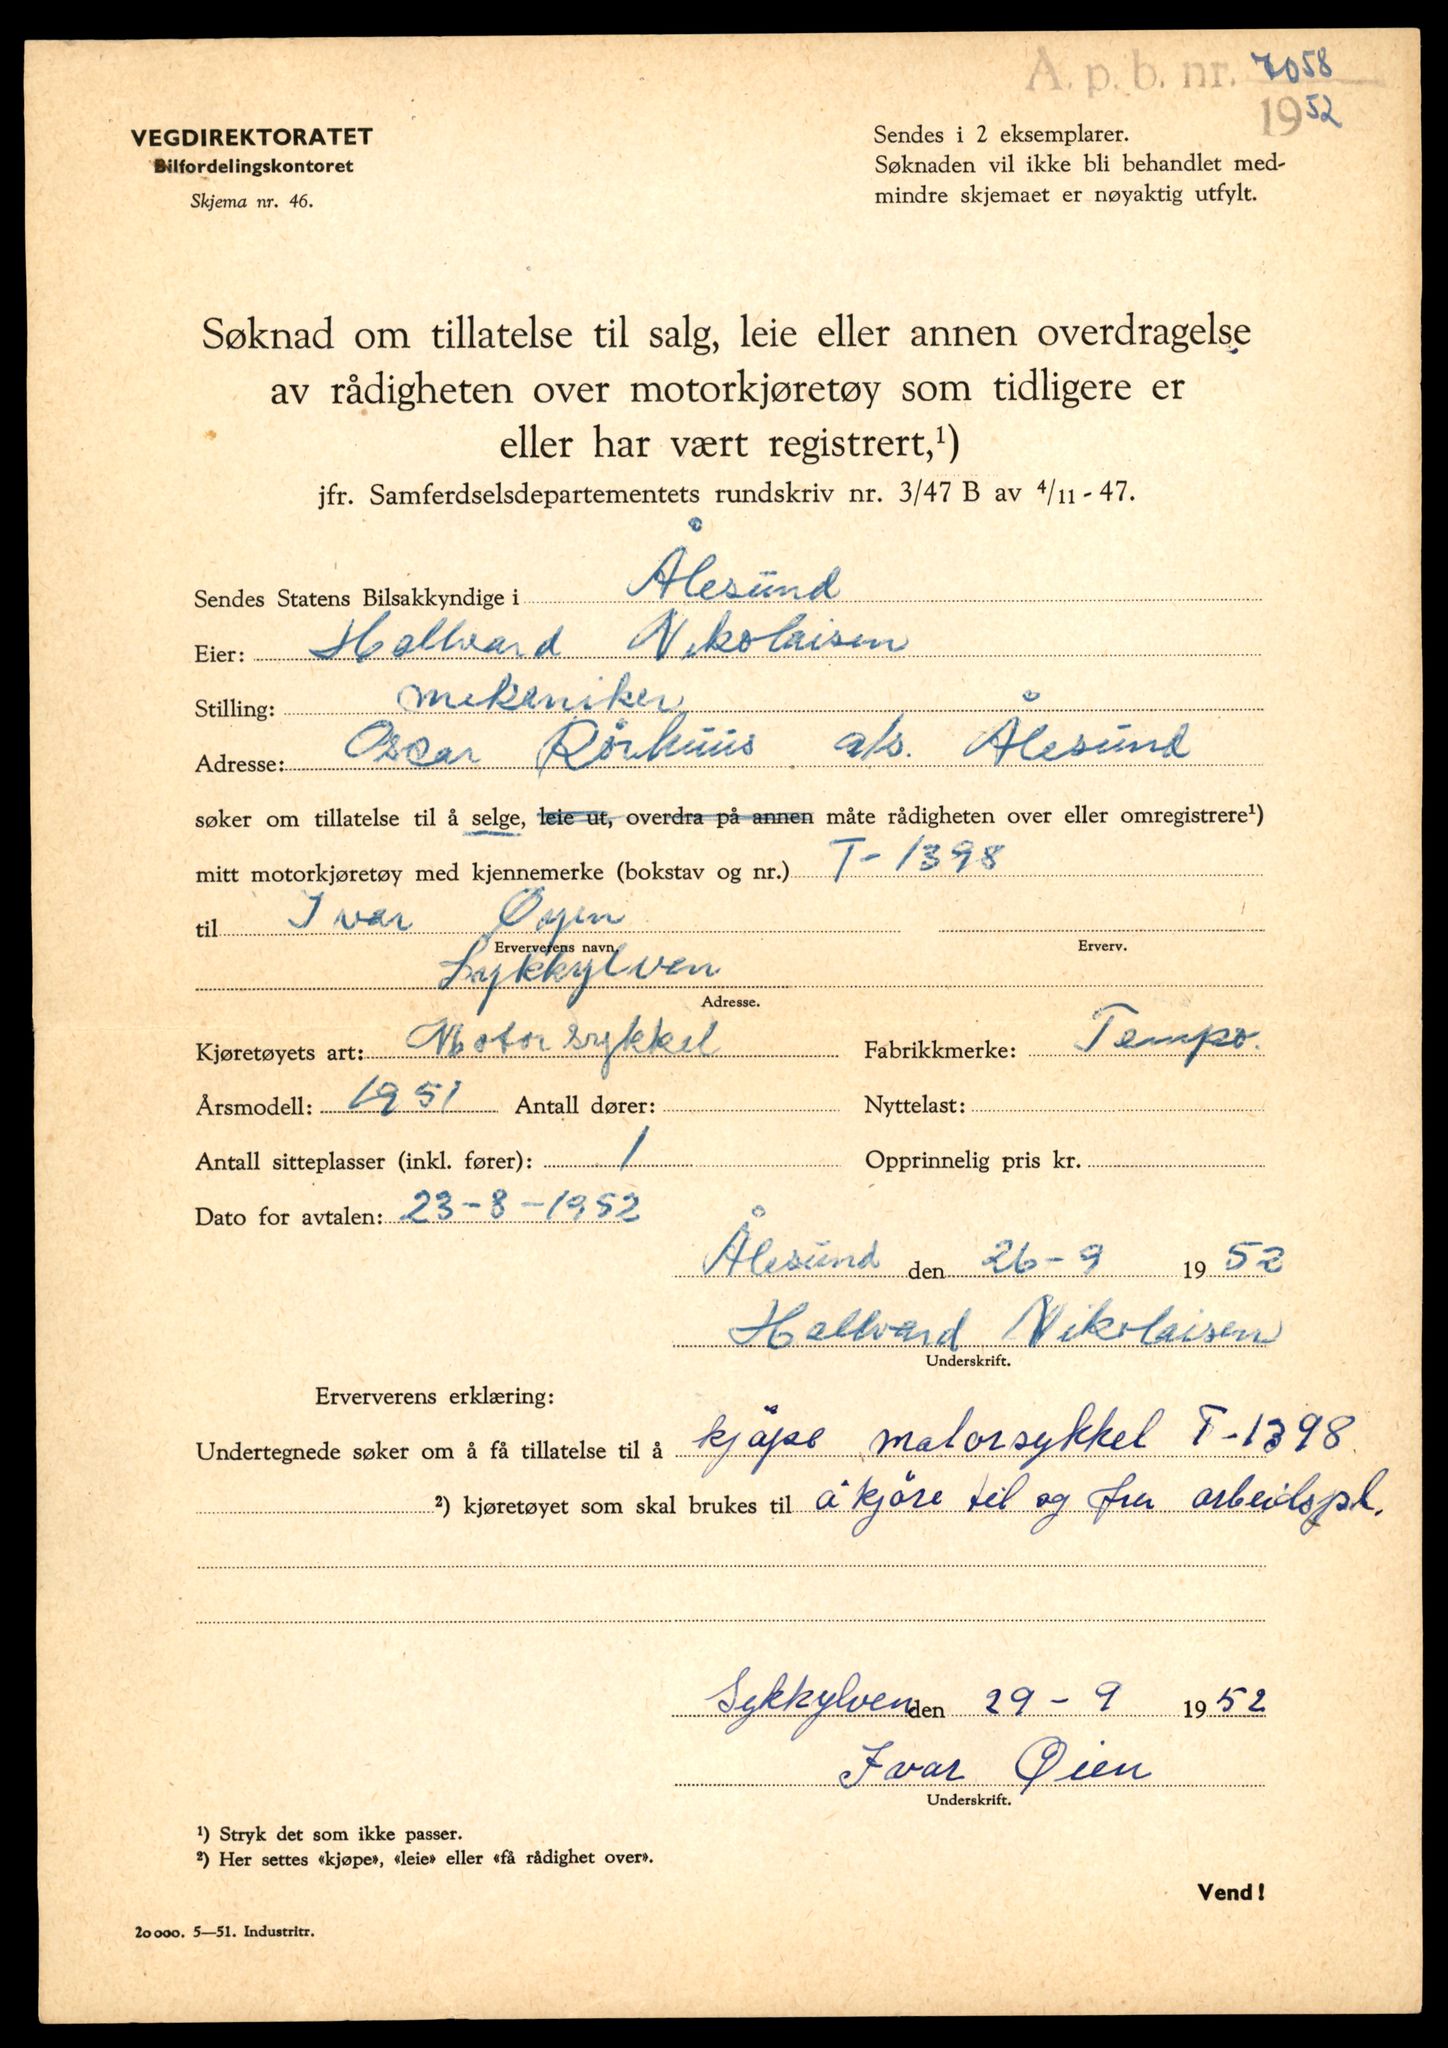 A. p. b. nr. 7058
1952
VEGDIREKTORATET
Bilfordelingskontoret
Skjema nr. 46.
Sendes i 2 eksemplarer.
Søknaden vil ikke bli behandlet med-
mindre skjemaet er nøyaktig utfylt.
Søknad om tillatelse til salg, leie eller annen overdragelse
av rådigheten over motorkjøretøy som tidligere er
eller har vært registrert,¹)
jfr. Samferdselsdepartementets rundskriv nr. 3/47 B av 4/11 - 47.
Sendes Statens Bilsakkyndige i Ålesund
Eier: Hallvard Nikolaisen
Stilling: mekaniker
Adresse: Oscar Rörhuus a/s. Ålesund
søker om tillatelse til å selge, leie ut, overdra på annen måte rådigheten over eller omregistrere¹)
mitt motorkjøretøy med kjennemerke (bokstav og nr.) T-1398
til Ivar Øyen
Erververens navn. Erverv.
Sykkylven
Adresse.
Kjøretøyets art: Motorsykkel Fabrikkmerke: Tempo.
Årsmodell: 1951 Antall dører: Nyttelast:
Antall sitteplasser (inkl. fører): 1 Opprinnelig pris kr.
Dato for avtalen: 23-8-1952
Ålesund den 26-9 1952
Hallvard Nikolaisen
Underskrift.
Erververens erklæring:
Undertegnede søker om å få tillatelse til å kjöpe motorsykkel T-1398
²) kjøretøyet som skal brukes til å kjöre til og fra arbeidspl.
Sykkylven den 29-9 1952
Ivar Øien
Underskrift.
¹) Stryk det som ikke passer.
²) Her settes «kjøpe», «leie» eller «få rådighet over».
Vend!
20 000. 5—51. Industritr.